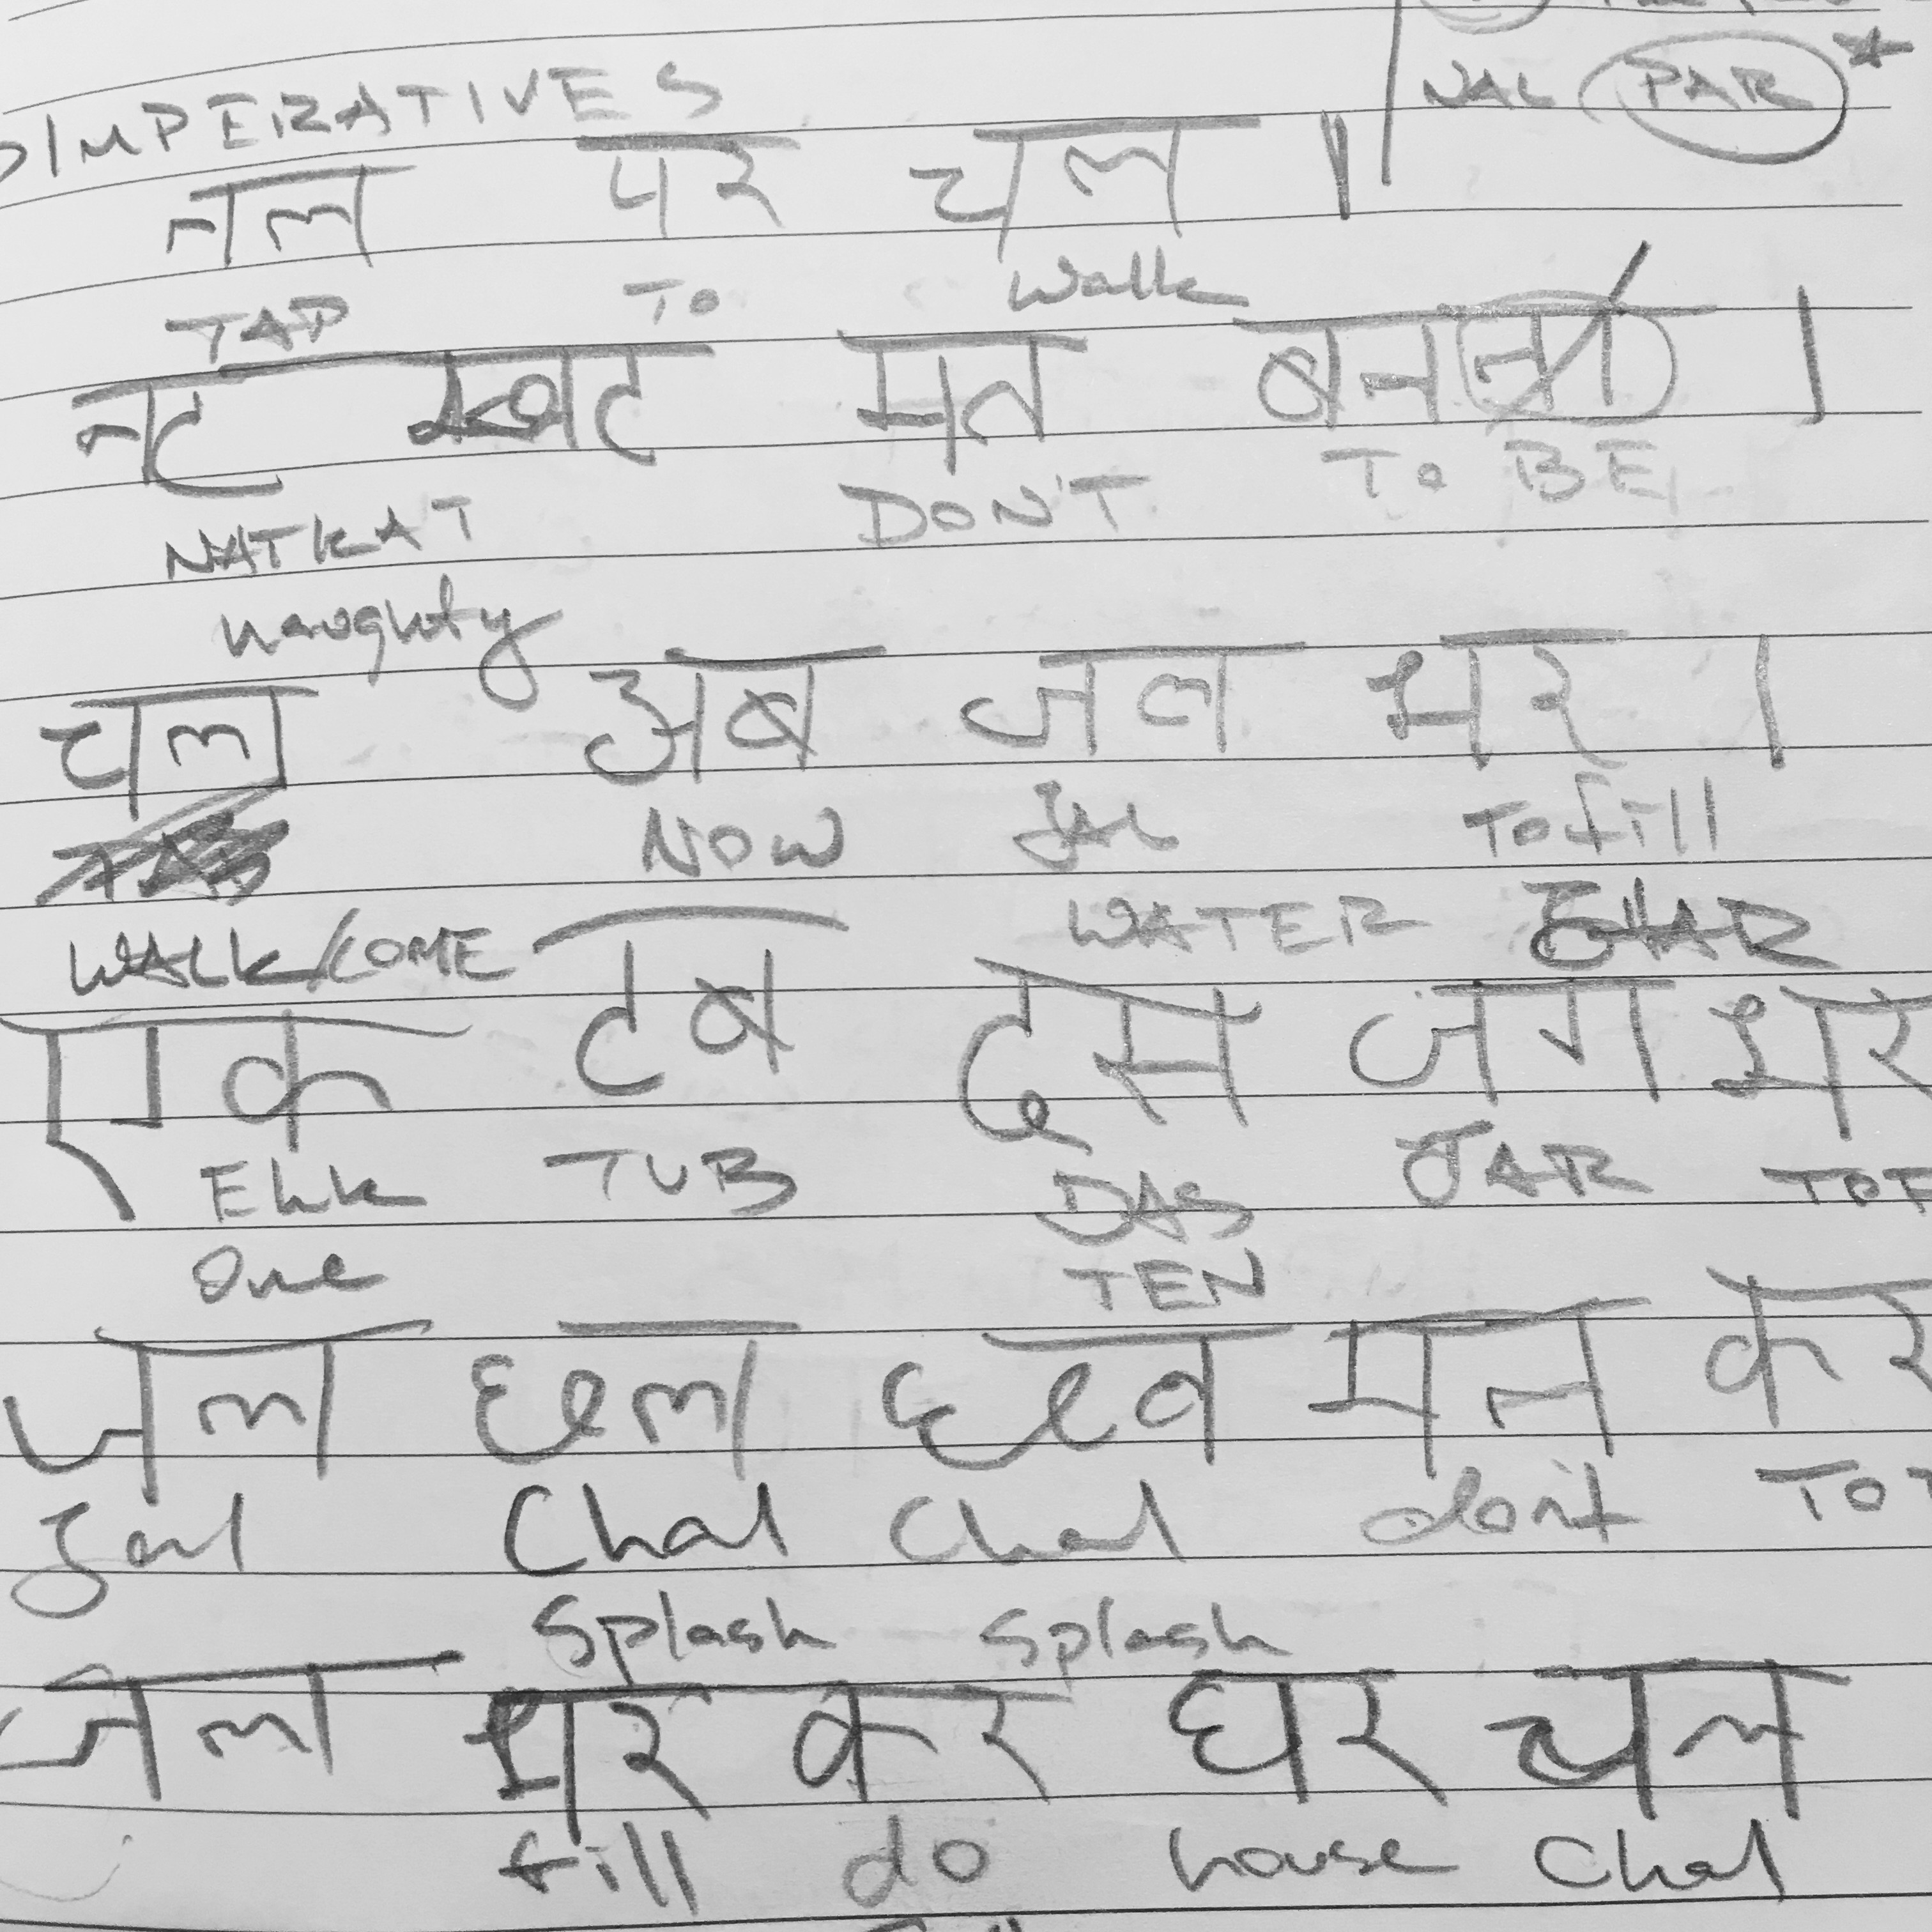 IMPERATIVES
NAL PAR *
नल पर चल ॥
TAP To Walk
नट खट मत बन ।
NATKAT DON'T To BE
naughty
चल अब जल भर ।
NOW JAL To fill
WALK/COME WATER BHAR
एक टब दस जग भर
Ehk TUB DAS JAR TO F
One TEN
जल छल छल मत कर
Jal Chal Chal don't TO
Splash Splash
जल भर कर घर चल
fill do house Chal